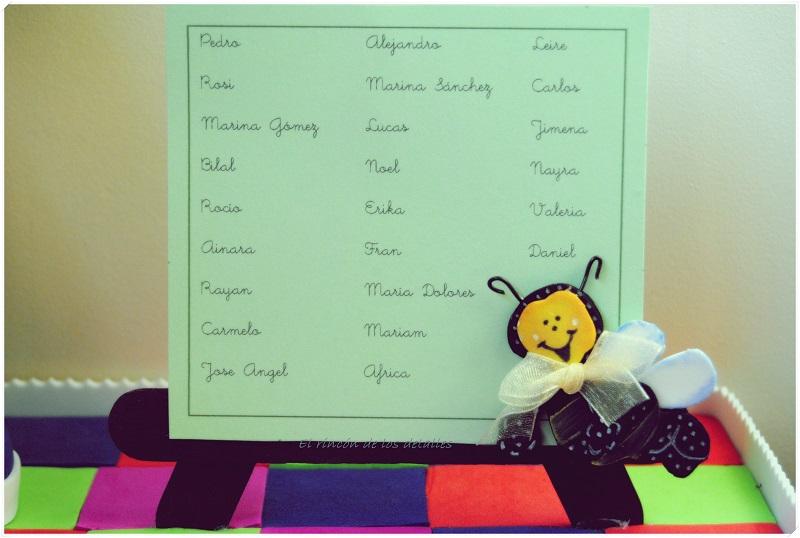 Pedro
Rosi
Marina Gómez
Bilal
Rocio
Ainara
Rayan
Carmelo
Jose Angel
Alejandro
Marina Sánchez
Lucas
Noel
Erika
Fran
Maria Dolores
Mariam
Africa
Leire
Carlos
Jimena
Nayra
Valeria
Daniel
El rincón de los detalles